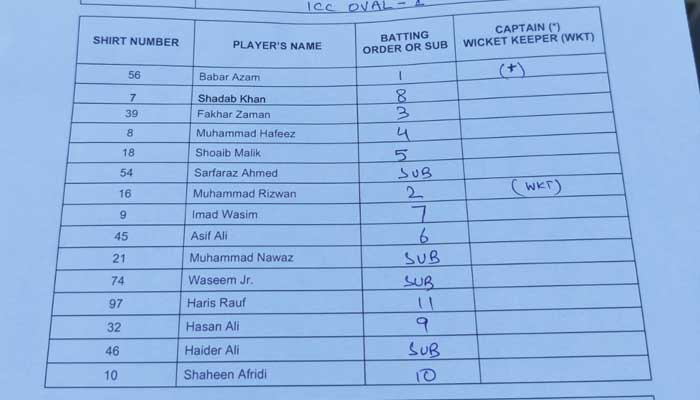 ICC OVAL - 1
SHIRT NUMBER PLAYER'S NAME BATTING ORDER OR SUB CAPTAIN (*) WICKET KEEPER (WKT)
56 Babar Azam 1 (+)
7 Shadab Khan 8
39 Fakhar Zaman 3
8 Muhammad Hafeez 4
18 Shoaib Malik 5
54 Sarfaraz Ahmed SUB
16 Muhammad Rizwan 2 (WKT)
9 Imad Wasim 7
45 Asif Ali 6
21 Muhammad Nawaz SUB
74 Waseem Jr. SUB
97 Haris Rauf 11
32 Hasan Ali 9
46 Haider Ali SUB
10 Shaheen Afridi 10